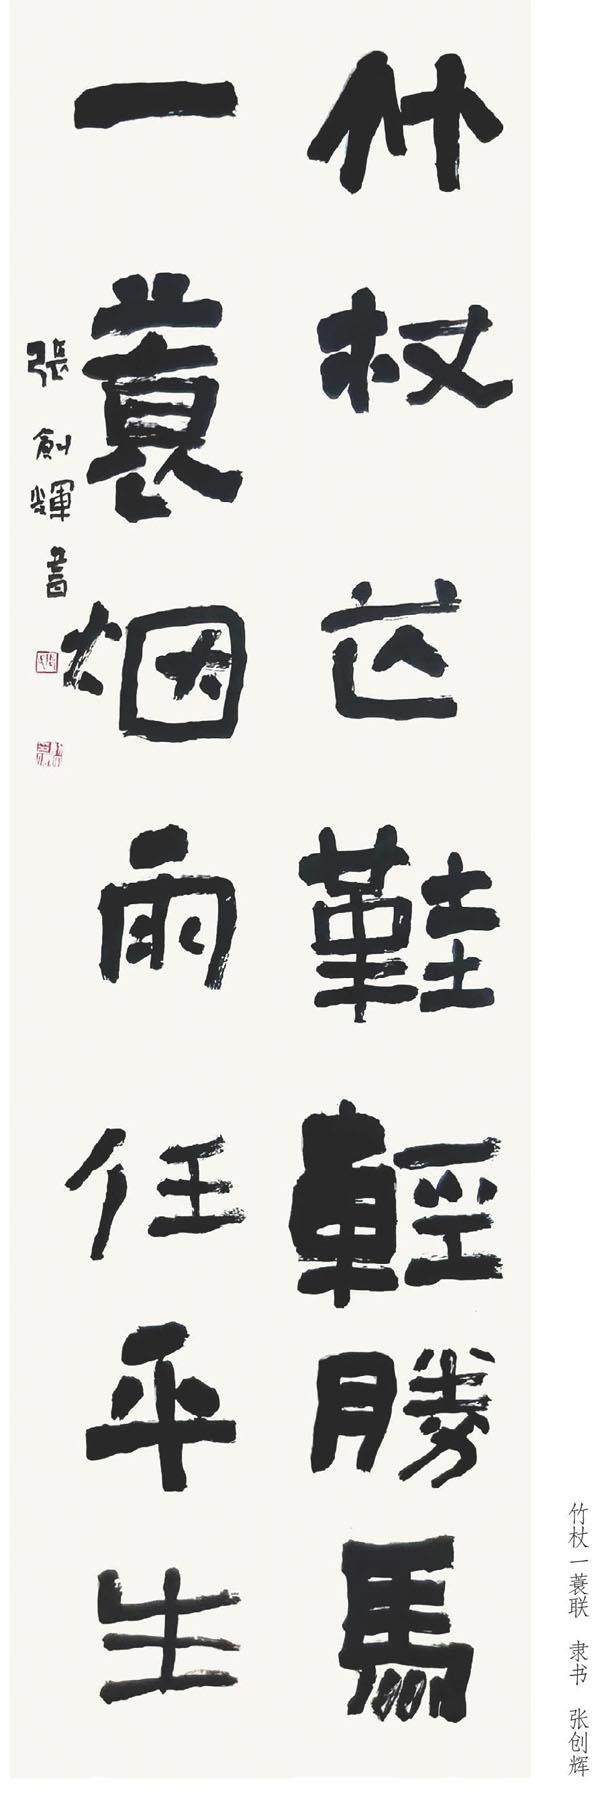 竹杖芒鞋輕勝馬
一蓑烟雨任平生
張創輝書
竹杖一蓑联 隶书 张创辉